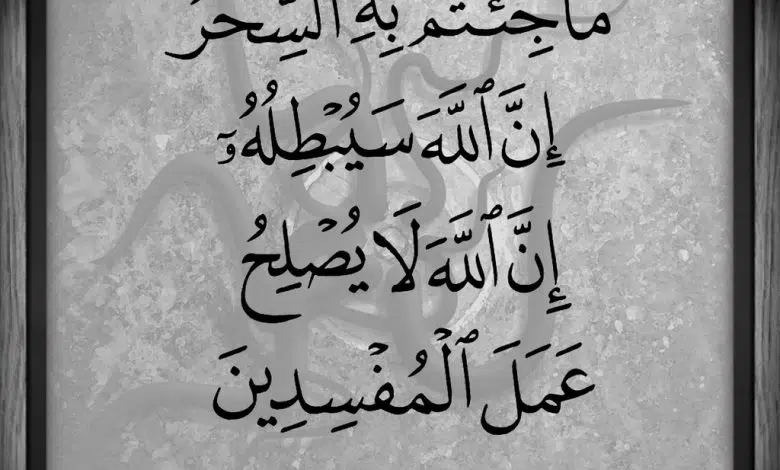 مَا جِئْتُم بِهِ السِّحْرُ
إِنَّ ٱللَّهَ سَيُبْطِلُهُۥٓ
إِنَّ ٱللَّهَ لَا يُصْلِحُ
عَمَلَ ٱلْمُفْسِدِينَ